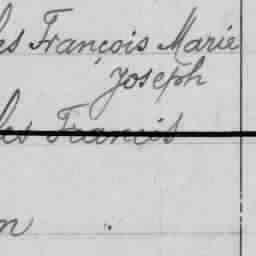 es François Marie
Joseph
les Francis
n